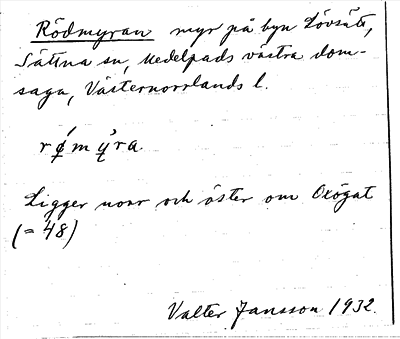 Rödmyran myr på byn Lövsätt,
Sättna sn, Medelpads västra dom-
saga, Västernorrlands l.
rǿmỳra.
Ligger norr och öster om Oxögat
(= 48)
Valter Jansson 1932.